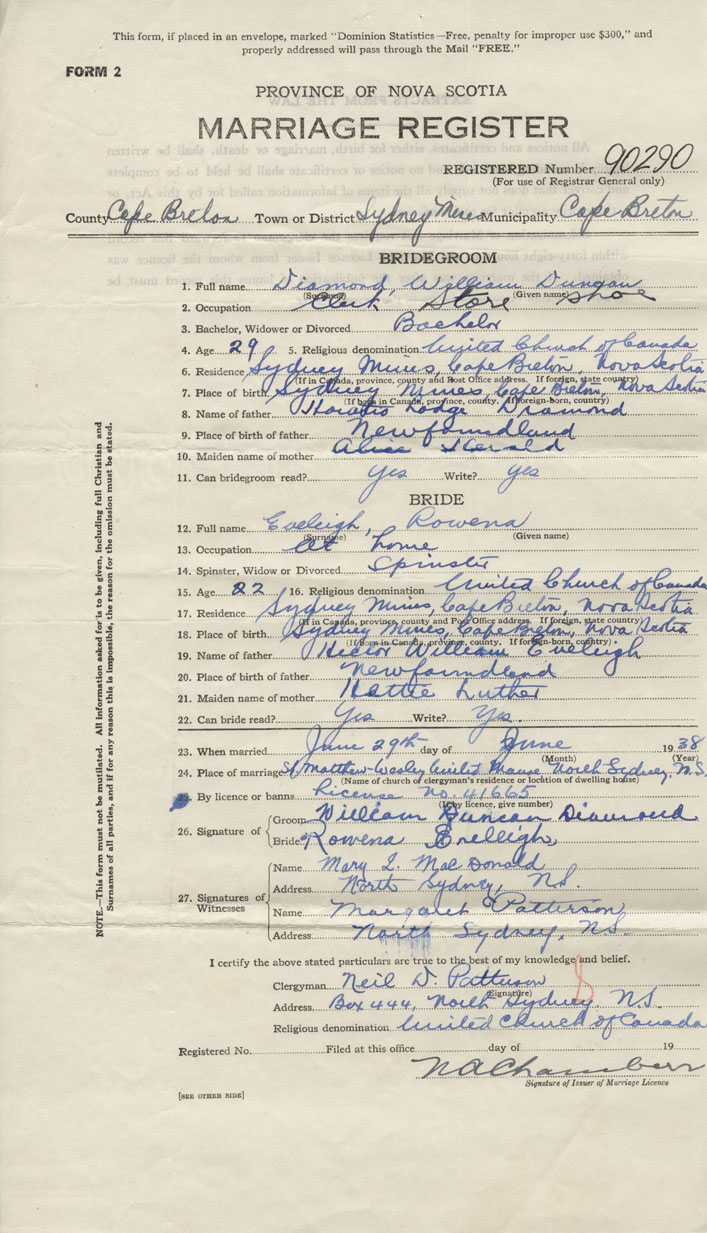 This form, if placed in an envelope, marked "Dominion Statistics—Free, penalty for improper use $300," and
properly addressed will pass through the Mail "FREE."
FORM 2
PROVINCE OF NOVA SCOTIA
MARRIAGE REGISTER
REGISTERED Number 90290
(For use of Registrar General only)
County Cape Breton Town or District Sydney Mines Municipality Cape Breton
BRIDEGROOM
1. Full name Diamond, William Duncan
(Surname) (Given name)
2. Occupation Clerk Store Shoe
3. Bachelor, Widower or Divorced Bachelor
4. Age 29 5. Religious denomination United Church of Canada
6. Residence Sydney Mines, Cape Breton, Nova Scotia
(If in Canada, province, county and Post Office address. If foreign, state country)
7. Place of birth Sydney Mines, Cape Breton, Nova Scotia
(If born in Canada, province, county. If foreign-born, country)
8. Name of father Horatio Lodge Diamond
9. Place of birth of father Newfoundland
10. Maiden name of mother Alice Herald
11. Can bridegroom read? Yes Write? Yes
BRIDE
12. Full name Eveleigh, Rowena
(Surname) (Given name)
13. Occupation at home
14. Spinster, Widow or Divorced Spinster
15. Age 22 16. Religious denomination United Church of Canada
17. Residence Sydney Mines, Cape Breton, Nova Scotia
(If in Canada, province, county and Post Office address. If foreign, state country)
18. Place of birth Sydney Mines, Cape Breton, Nova Scotia
(If born in Canada, province, county. If foreign-born, country)
19. Name of father Hector William Eveleigh
20. Place of birth of father Newfoundland
21. Maiden name of mother Hattie Luther
22. Can bride read? Yes Write? Yes.
23. When married June 29th day of June 1938
(Month) (Year)
24. Place of marriage St. Matthew-Wesley United Manse North Sydney, N.S.
(Name of church or clergyman's residence or location of dwelling house)
25. By licence or banns License no. 41665
(If by licence, give number)
26. Signature of
Groom William Duncan Diamond
Bride Rowena Eveleigh
27. Signatures of Witnesses
Name Mary L. MacDonald
Address North Sydney, N.S.
Name Margaret Patterson
Address North Sydney, N.S.
I certify the above stated particulars are true to the best of my knowledge and belief.
Clergyman Neil D. Patterson
(Signature)
Address Box 444, North Sydney, N.S.
Religious denomination United Church of Canada
Registered No. Filed at this office day of 19
N A Chambers
Signature of Issuer of Marriage Licence
[SEE OTHER SIDE]
NOTE.—This form must not be mutilated. All information asked for is to be given, including full Christian and
Surnames of all parties, and if for any reason this is impossible, the reason for the omission must be stated.